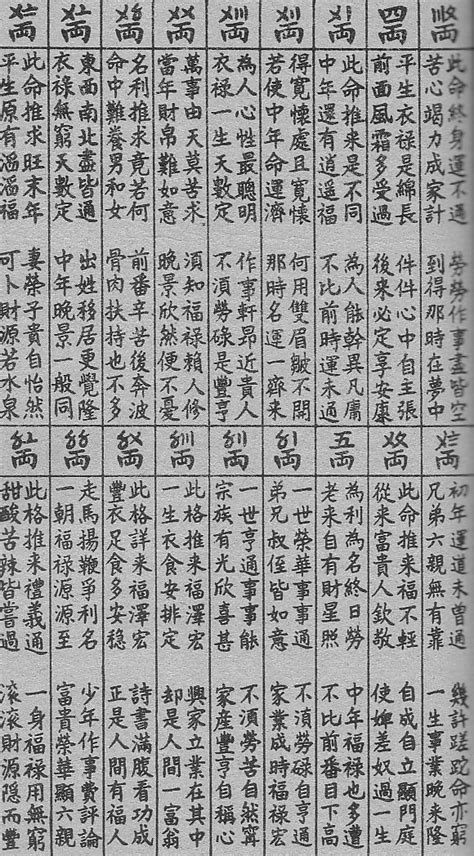 〣〩両
此命終身運不通
勞勞作事盡皆空
苦心竭力成家計
到得那時在夢中
四両
平生衣祿是綿長
件件心中自主張
前面風霜多受過
後來必定享安康
〤〡両
此命推來是不同
為人能幹異凡庸
中年還有逍遥福
不比前時運未通
〤〢両
得寬懷處且寬懷
何用雙眉皺不開
若使中年命運濟
那時名運一齊來
〤〣両
為人心性最聰明
作事軒昂近貴人
衣祿一生天數定
不須勞碌是豐亨
〤〤両
萬事由天莫苦求
須知福祿賴人修
當年財帛難如意
晚景欣然便不憂
〤〥両
名利推求竟若何
前番辛苦後奔波
命中難養男和女
骨肉扶持也不多
〤〦両
東西南北盡皆通
出姓移居更覺隆
衣祿無窮天數定
中年晚景一般同
〤〧両
此命推求旺末年
妻榮子貴自怡然
平生源有滔滔福
可卜財源若水泉
〤〨両
初年運道未曾通
幾許蹉跎命亦窮
兄弟六親無有靠
一生事業晚來隆
〤〩両
此命推來福不輕
自成自立顯門庭
從來富貴人欽敬
使婢差奴過一生
五両
為利為名終日勞
中年福祿也多遭
老來自有財星照
不比前番目下高
〥〡両
一世榮華事事通
不須勞碌自亨通
弟兄叔侄皆如意
家業成時福祿宏
〥〢両
一世亨通事事能
不須勞苦自然寧
宗族有光欣喜甚
家產豐亨自稱心
〥〣両
此格推來福澤宏
興家立業在其中
一生衣食安排定
却是人間一富翁
〥〤両
此格詳來福澤宏
詩書滿腹看功成
豐衣足食多安穩
正是人間有福人
〥〥両
走馬揚鞭爭利名
少年作事費評論
一朝福祿源源至
富貴榮華顯六親
〥〦両
此格推來禮義通
一身福祿用無窮
甜酸苦辣皆嘗過
滾滾財源隱而豐